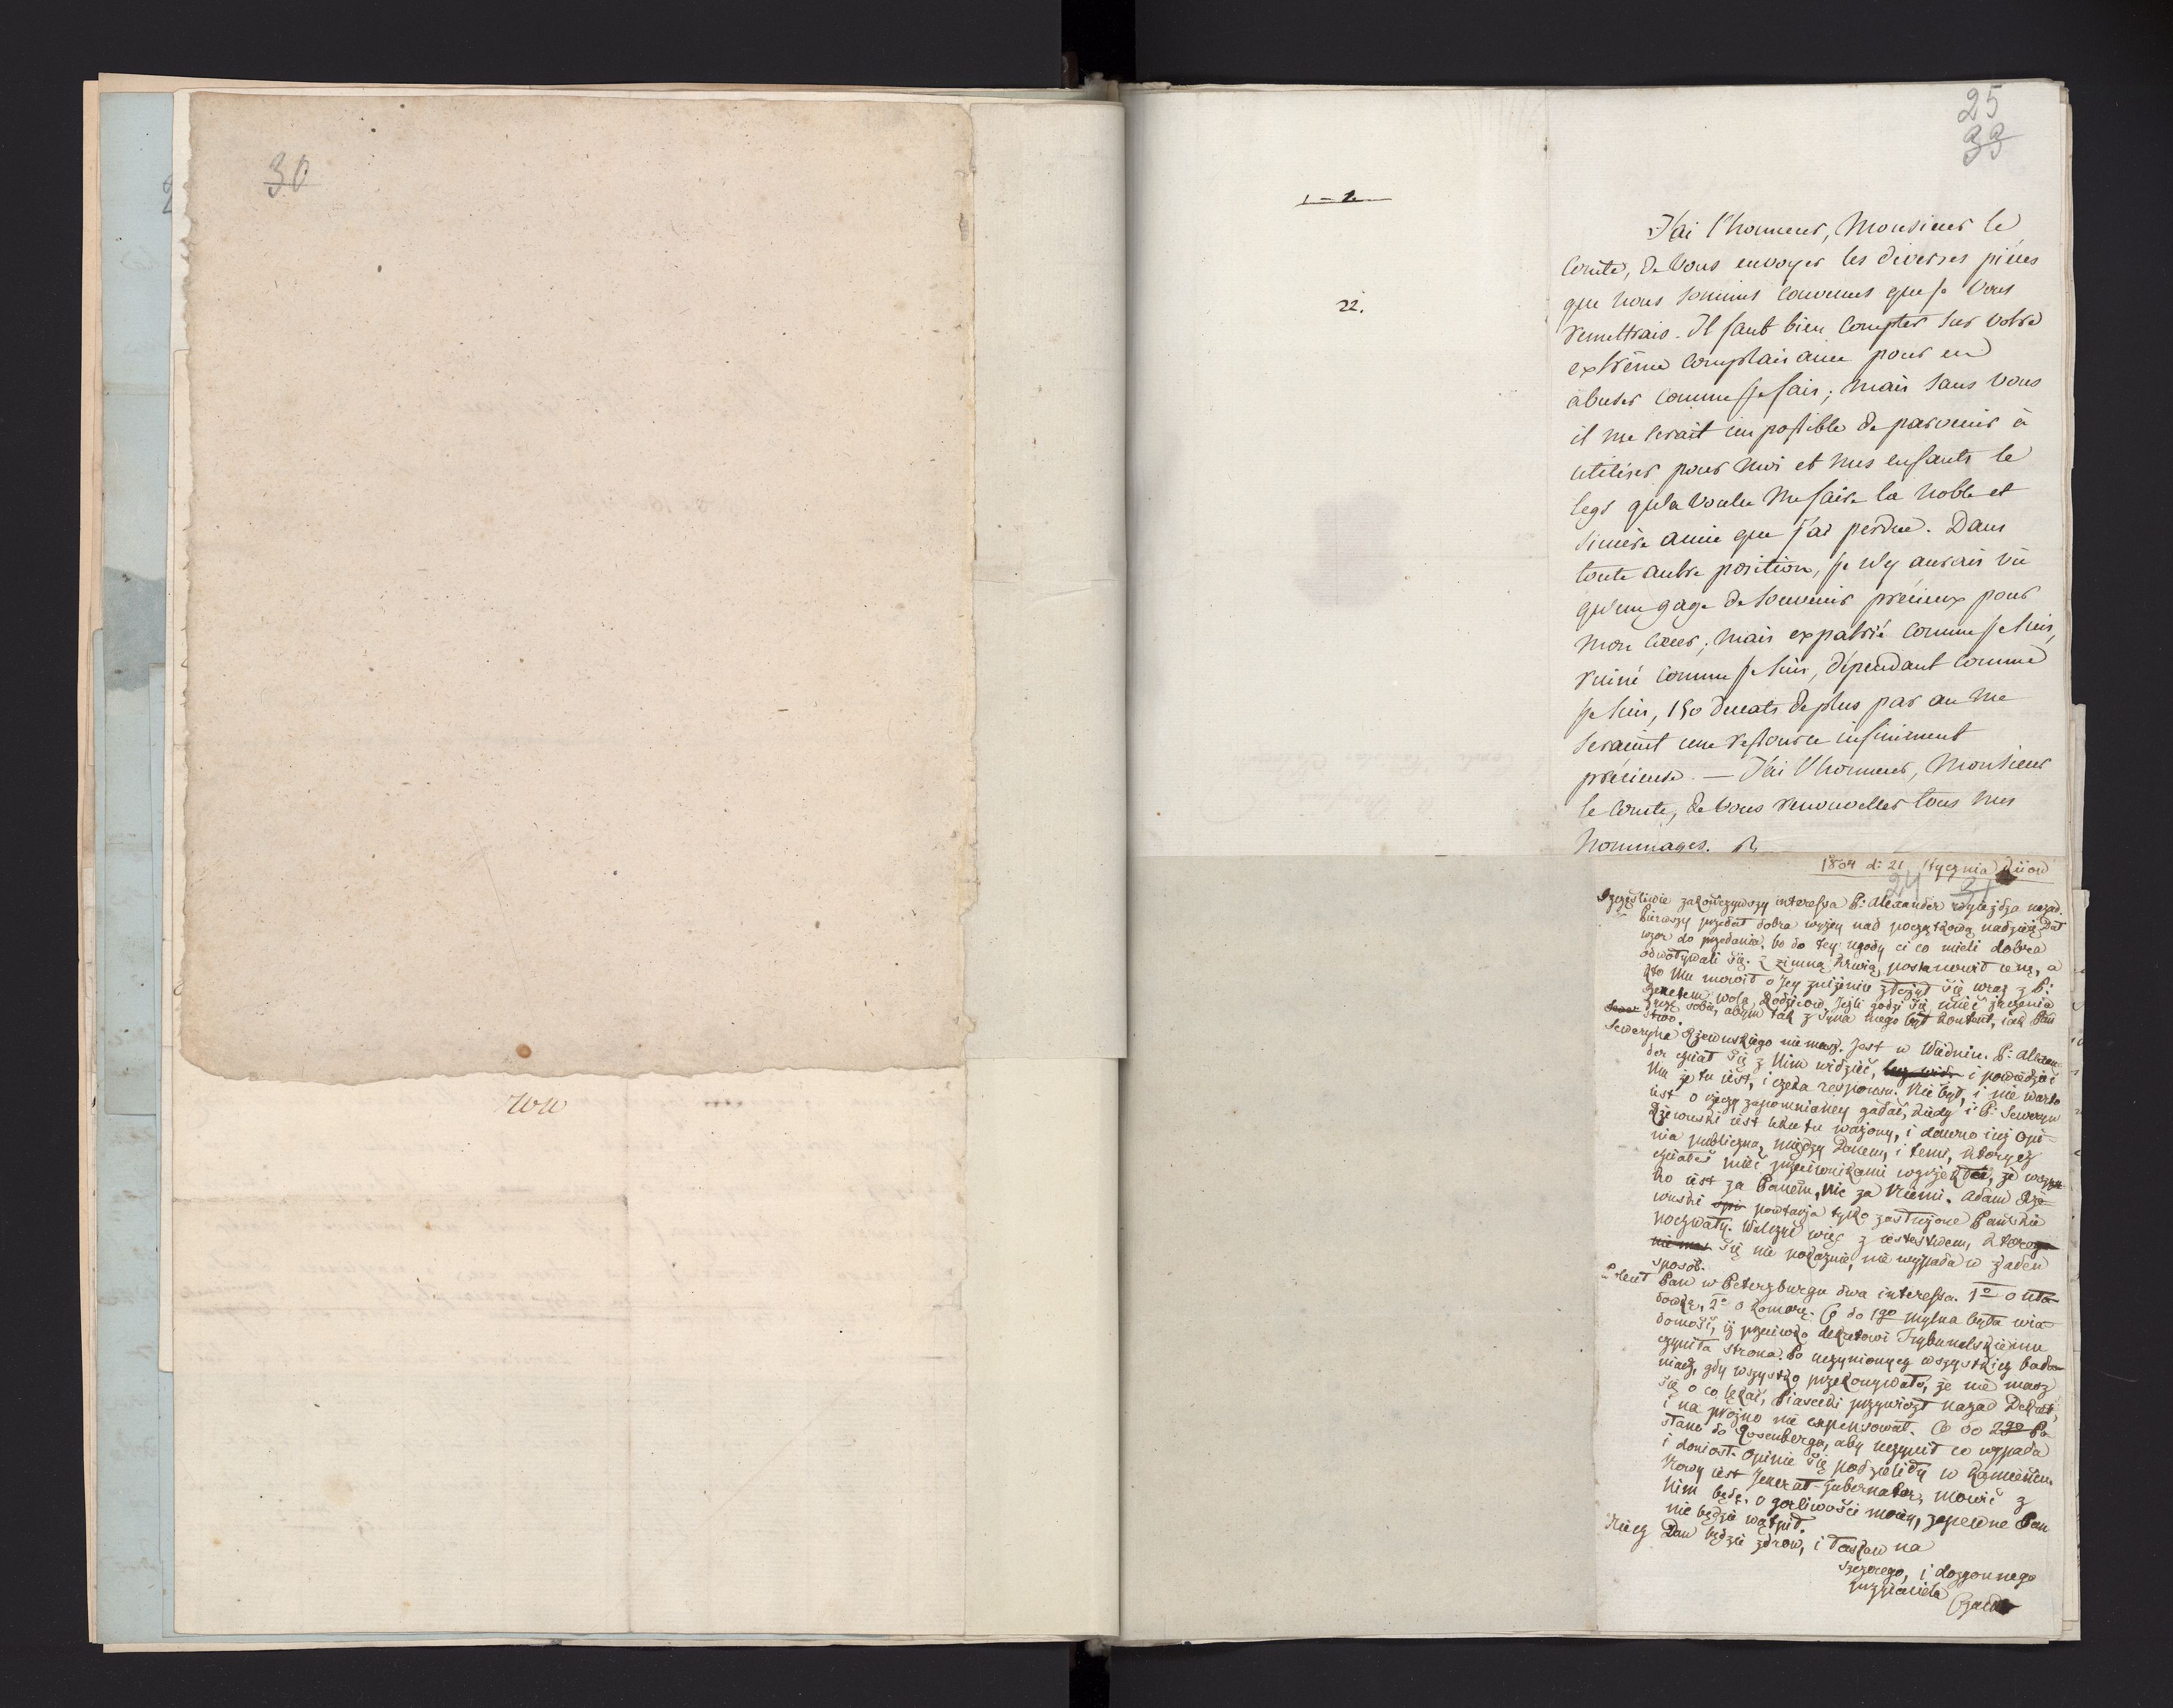 30
1 – 2
22.
25
33
J'ai l'honneur, Monsieur le
Comte, de Vous envoyer les diverses pièces
que nous sommes convenus que je Vous
remettrais. Il faut bien compter sur votre
extrême complaisance pour en
abuser comme je fais; mais sans vous
il me serait impossible de parvenir à
utiliser pour moi et mes enfants le
legs qu'a voulu me faire la noble et
sincère amie que j'ai perdue. Dans
toute autre position, je n'y aurais vû
qu'un gage de souvenir précieux pour
mon cœur; mais expatrié comme je suis,
ruiné comme je suis, dépendant comme
je suis, 150 ducats de plus par an me
seraient une ressource infiniment
précieuse. — J'ai l'honneur, Monsieur
le Comte, de vous renouveller tous mes
hommages. R.
1804 d: 21 stycznia Kiiow
24
Szczęśliwie zakończywszy interessa P: Alexander wyieżdza nazad.
Pierwszy przedał dobra wyżey nad początkową nadzieię. Dał
wzor do przedania, bo do tey ugody ci co mieli dobra
odwoływali się. Z zimną krwią postanowił cenę, a
kto Mu mowił o Jey zniżeniu złożył się wraz z P:
wolą Rodzicow. Jeżli godzi się mieć życzenia
życzę sobie, abym tak z syna mego był kontent, iak Pan
Seweryna Rzewuskiego nie masz. Jest w Wiedniu. P: Alexan-
der chciał się z Nim widzieć, i powiedzieć
Mu że tu iest, i czeka responsu. Nie był, i nie warto
iest o rzeczy zapomnianey gadać, kiedy i P: Seweryn
Rzewuski iest lekce tu ważony, i dawno iuż opi-
nia publiczna między Panem, i temi, ktorych
chciałeś mieć przeciwnikami wyrzekła, że wszyst-
ko iest za Panem, nic za Niemi. Adam Rze-
wuski powtarza tylko zasłużone Pańskie
pochwały. Walczyć więc z iestestwem, ktore
się nie pokaznie, nie wypada w żaden
sposob.
Polecił Pan w Peterzburgu dwa interessa. 1o o
2o o komorę. Co do 1go mylna była wia-
domość, iż przeciwko dekretowi Trybunalskiemu
czyniła strona. Po uczynionych wszystkich bada-
niach, gdy wszystko przekonywało, że nie masz
się o co lękać, Piasecki przywiozł nazad Dekret,
i na prożno nie expensował. Co do 2go Po-
słano do Rosenberga, aby uczynił co wypada
i doniosł. Opinie się podzieliły w Kamieńcu.
Nowy iest Jenerał-Gubernator, mowić z
Nim będę. o gorliwości moiey, zapewne Pan
nie będzie wątpił.
Niech Pan będzie zdrow, i łaskaw na
szczerego, i dozgonnego
przyiaciela